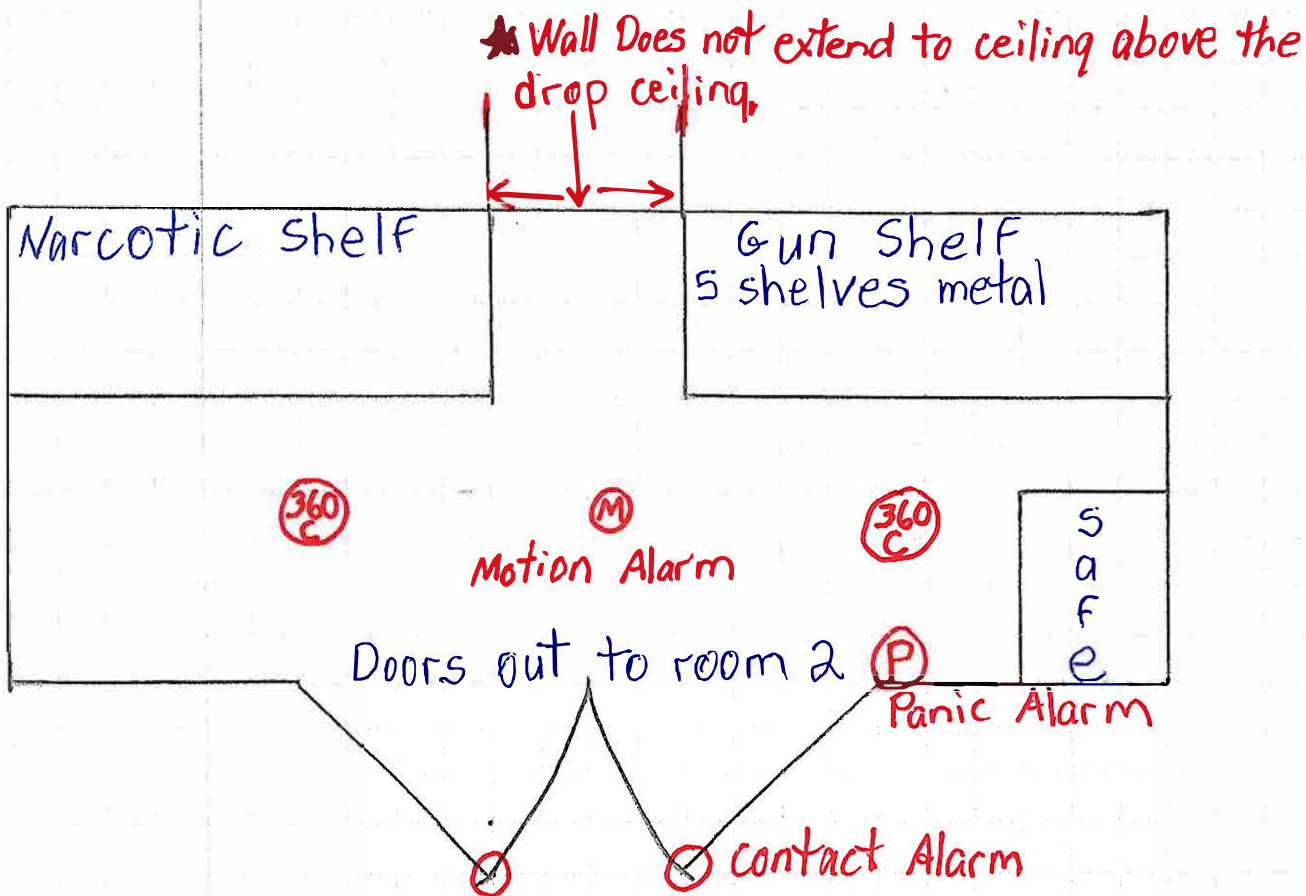 ★ Wall Does not extend to ceiling above the
drop ceiling.
Narcotic Shelf
Gun Shelf
5 shelves metal
360
C
M
360
C
Motion Alarm
Safe
Doors out to room 2
P
Panic Alarm
Contact Alarm